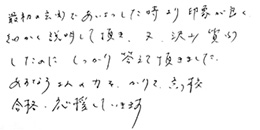 最初の玄関であいさつした時より印象が良く
細かく説明して頂き、又、沢山質問
したのに しっかり答えて頂きました。
さんの力を、かりて、高校
合格、応援しています